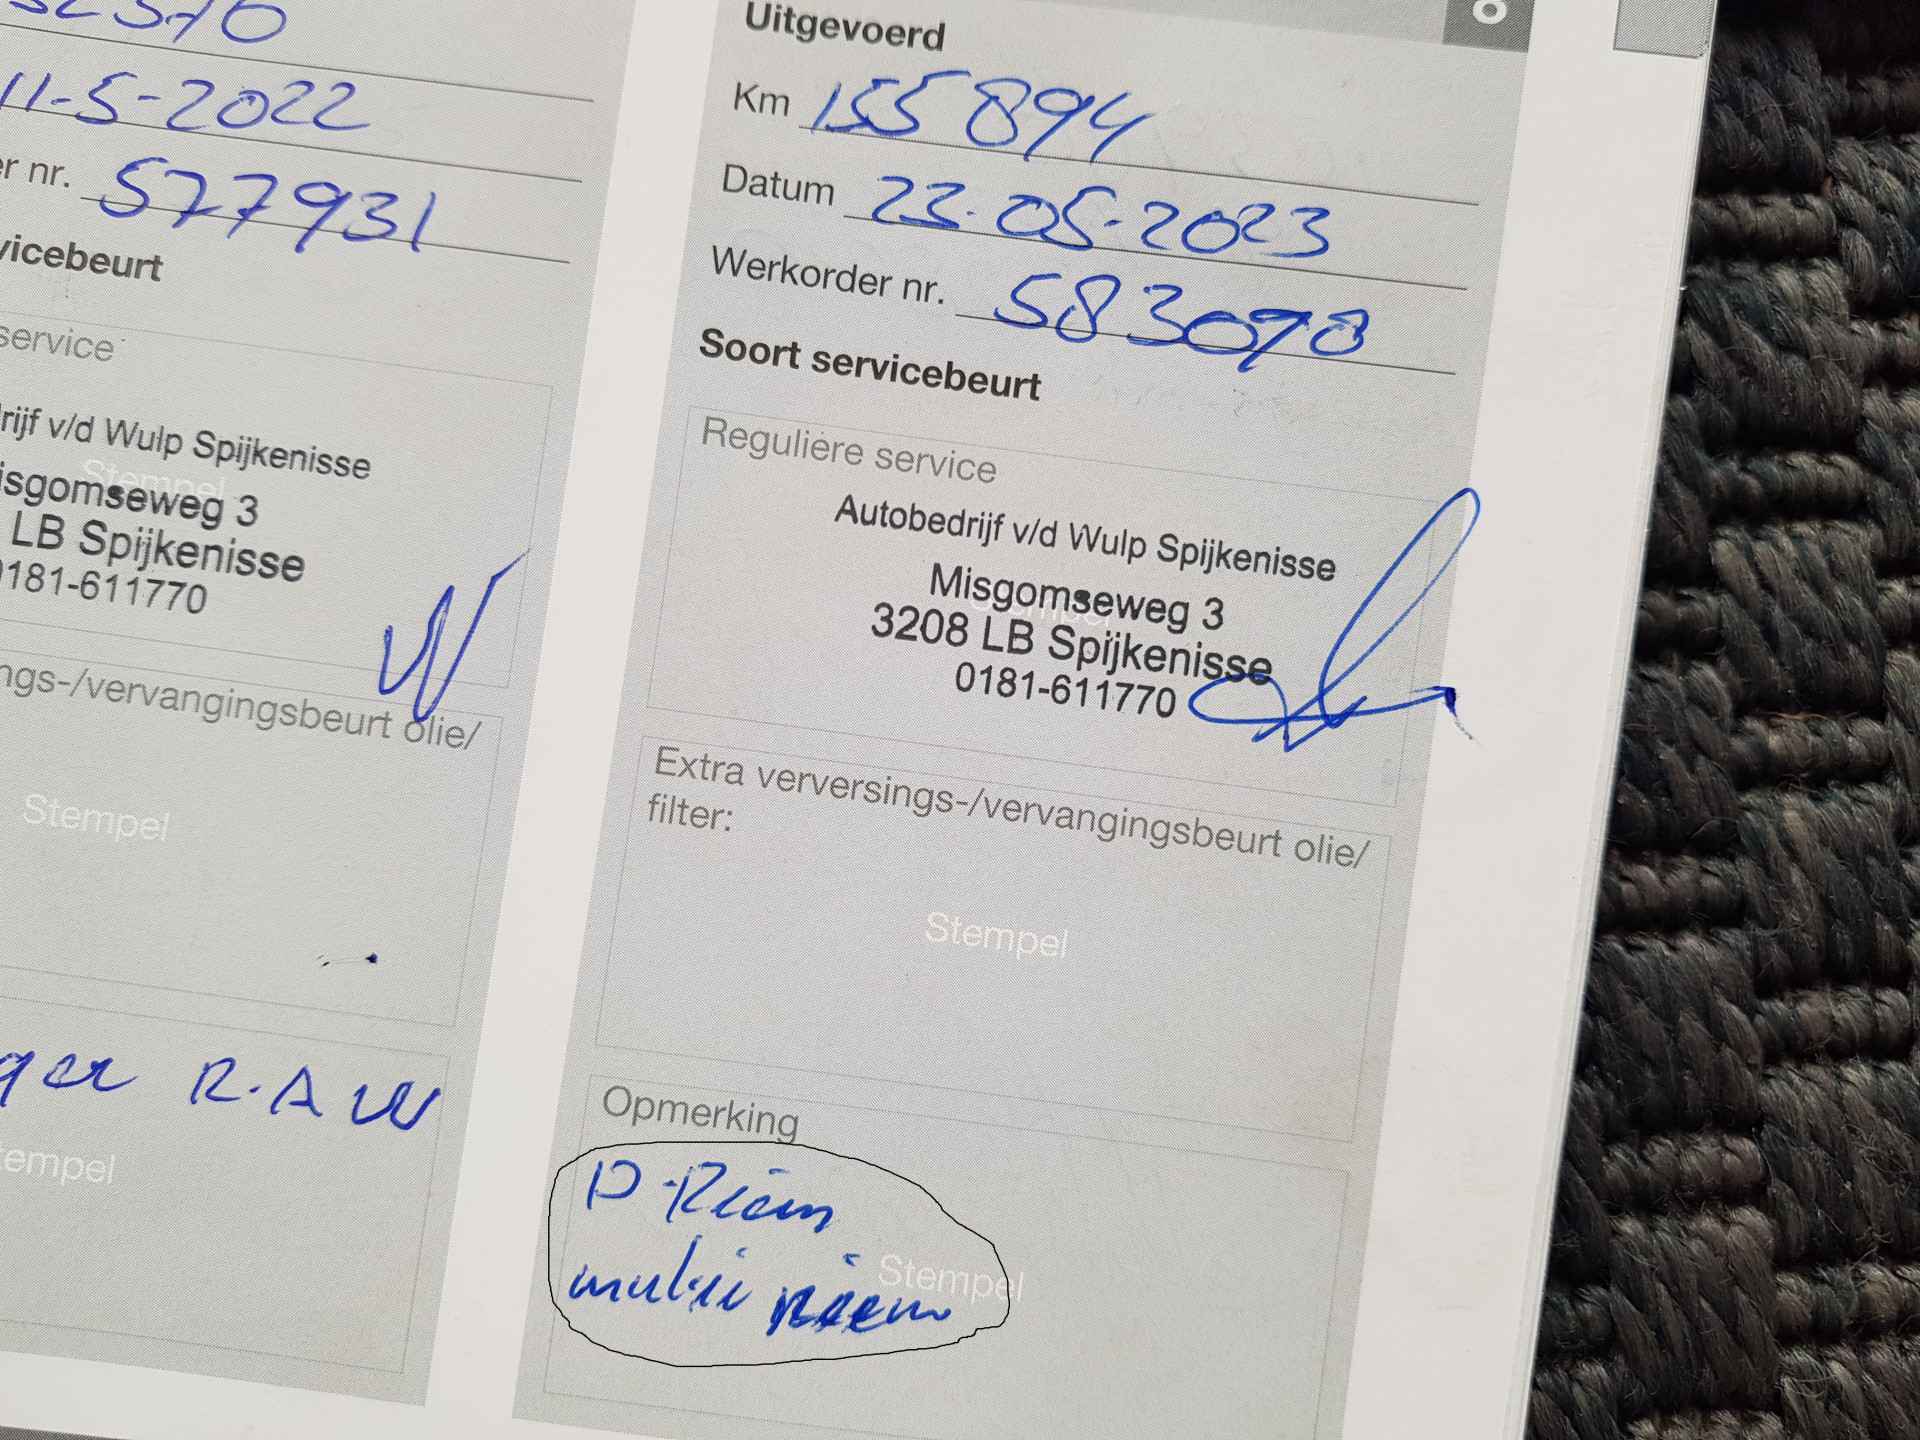 11-5-2022
er nr. 577931
vicebeurt
service
rijf v/d Wulp Spijkenisse
Stempel
isgomseweg 3
LB Spijkenisse
0181-611770
ngs-/vervangingsbeurt olie/
Stempel
R.A W
tempel
8
Uitgevoerd
Km 155894
Datum 23-05-2023
Werkorder nr. 583098
Soort servicebeurt
Reguliere service
Autobedrijf v/d Wulp Spijkenisse
Misgomseweg 3
3208 LB Spijkenisse
0181-611770
Extra verversings-/vervangingsbeurt olie/
filter:
Stempel
Opmerking
D-Riem
multi riem
Stempel